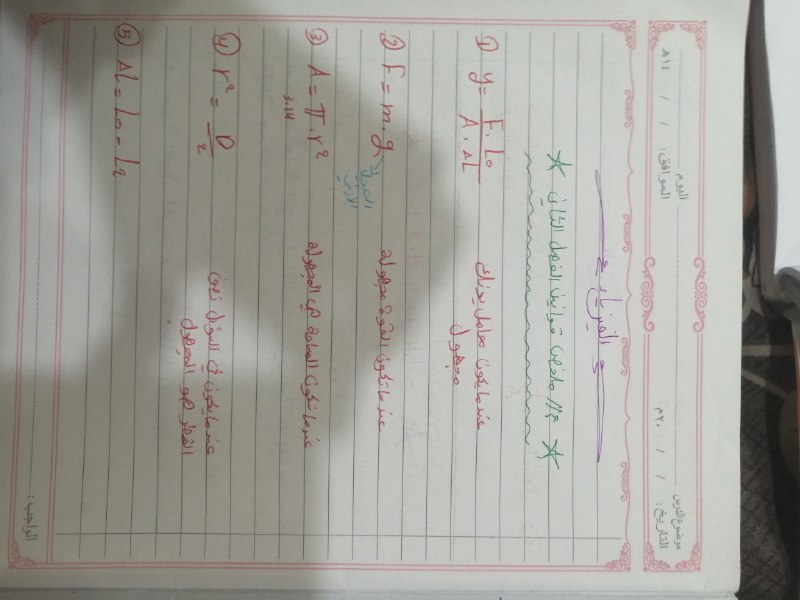 اليوم : / / ١٤هـ
الموافق : / / ٢٠م
موضوع الدرس :
التاريخ :
الفيزياء
* ملخص قوانين الفصل الثاني *
① y = F . L₀ / A . ΔL عندما يكون معامل يونك مجهول
② F = m . g عندما تكون القوة مجهولة
التعجيل الأرضي
③ A = π . r² عندما تكون المساحة هي المجهولة
3.14
④ r² = D / 2 عندما يكون في السؤال
القطر هو المجهول
⑤ ΔL = L₀ - L₂
الواجب :